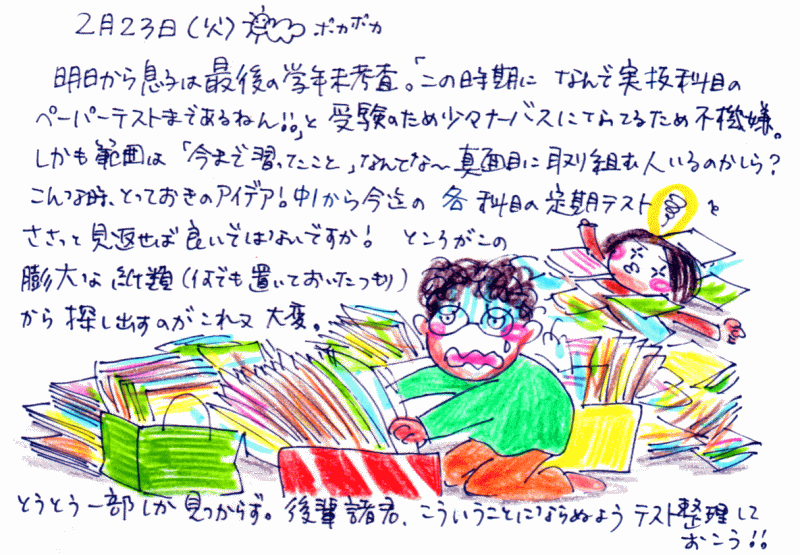 2月23日(火) ポカポカ
明日から息子は最後の学年末考査。「この時期に なんで実技科目の
ペーパーテストまであるねん!!。」と 受験のため少々ナーバスになってるため不機嫌。
しかも範囲は「今まで習ったこと」なんてな〜 真面目に取り組む人いるのかしら?
こんな時、とっておきのアイデア!中1から今迄の 各科目の定期テスト を
ささっと見返せば良いではないですか! ところがこの
膨大な紙類(何でも置いておいたつもり)
から 探し出すのがこれ又 大変。
とうとう一部しか見つからず。後輩諸君、こういうことにならぬよう テスト整理して
おこう!!